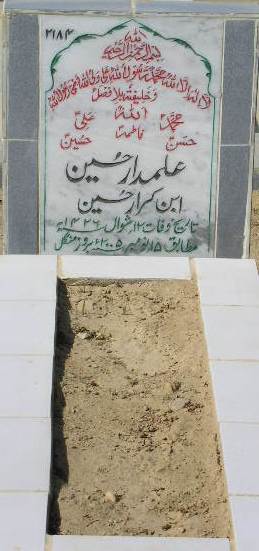 ۲۱۸۴
الله
بسم الله الرحمن الرحیم
لا اله الا الله محمد رسول الله علی ولی الله وصی رسول الله
و خلیفته بلا فصل
محمد الله علی
حسن فاطمه حسین
علمدار حسین
ابن کرار حسین
تاریخ وفات ۱۲ شوال ۱۴۲۶ھ
مطابق ۱۵ نومبر ۲۰۰۵ء بروز منگل